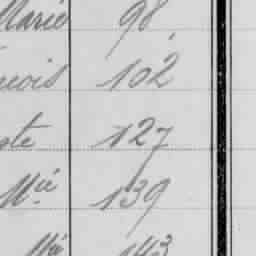 Marie 98
102
127
Mie 139
Mie 143